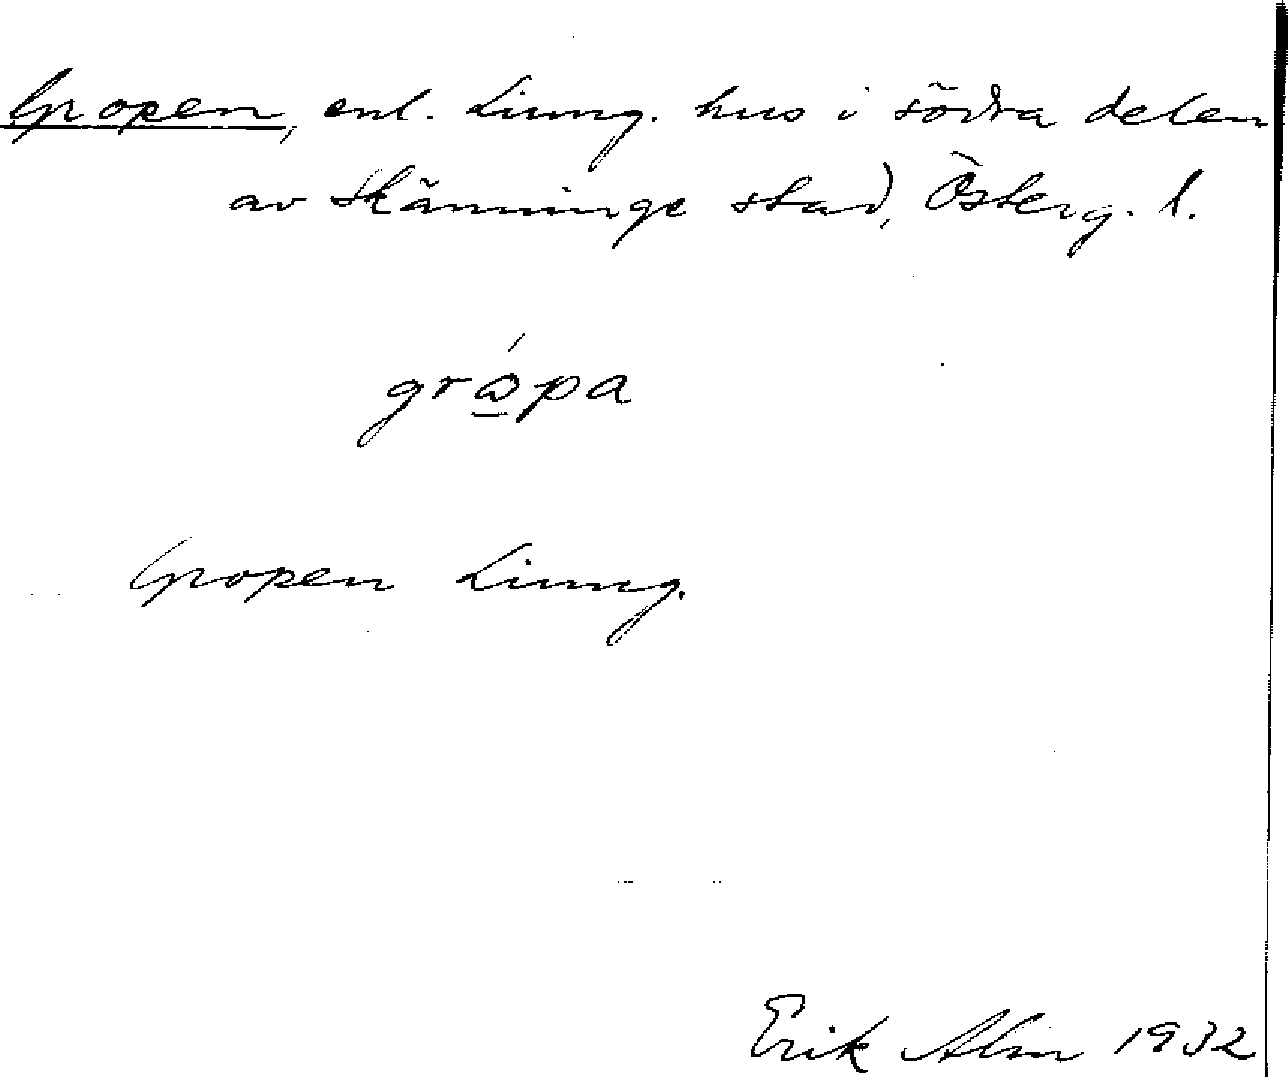 Gropen, enl. Ljung. hus i södra delen
av Skänninge stad, Österg. l.
grǻ̲pa
Gropen Ljung.
Erik Alm 1932